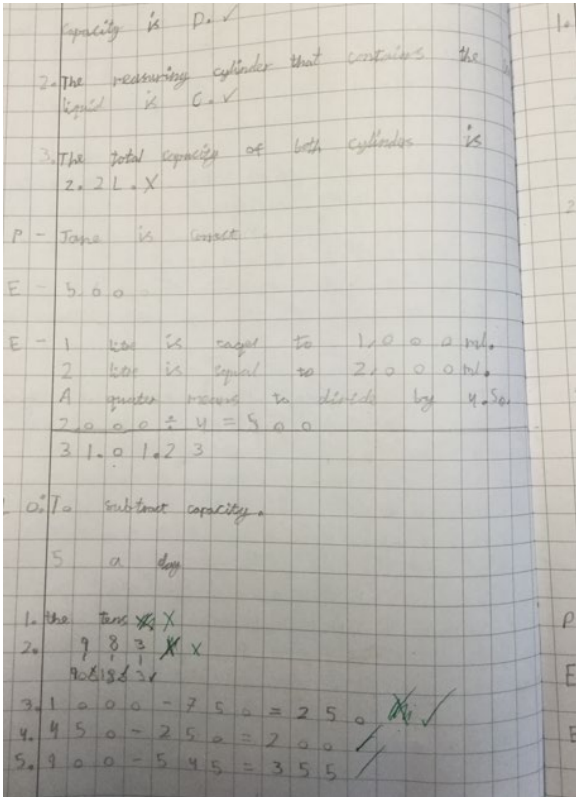 capacity is D. ✓
2. The measuring cylinder that contains the
liquid is C. ✓
3. The total capacity of both cylinders is
2.2L. X
P - Jane is correct
E - 500
E - 1 litre is equal to 1,000ml.
2 litre is equal to 2,000ml.
A quater means to divide by 4. So,
2000 ÷ 4 = 500
31.01.23
L.O: To subtract capacity.
5 a day
1. the tens X
2. 983 X
3. 1000 - 750 = 250 ✓
4. 450 - 250 = 200 /
5. 900 - 545 = 355 /
1.
2
P
E
E